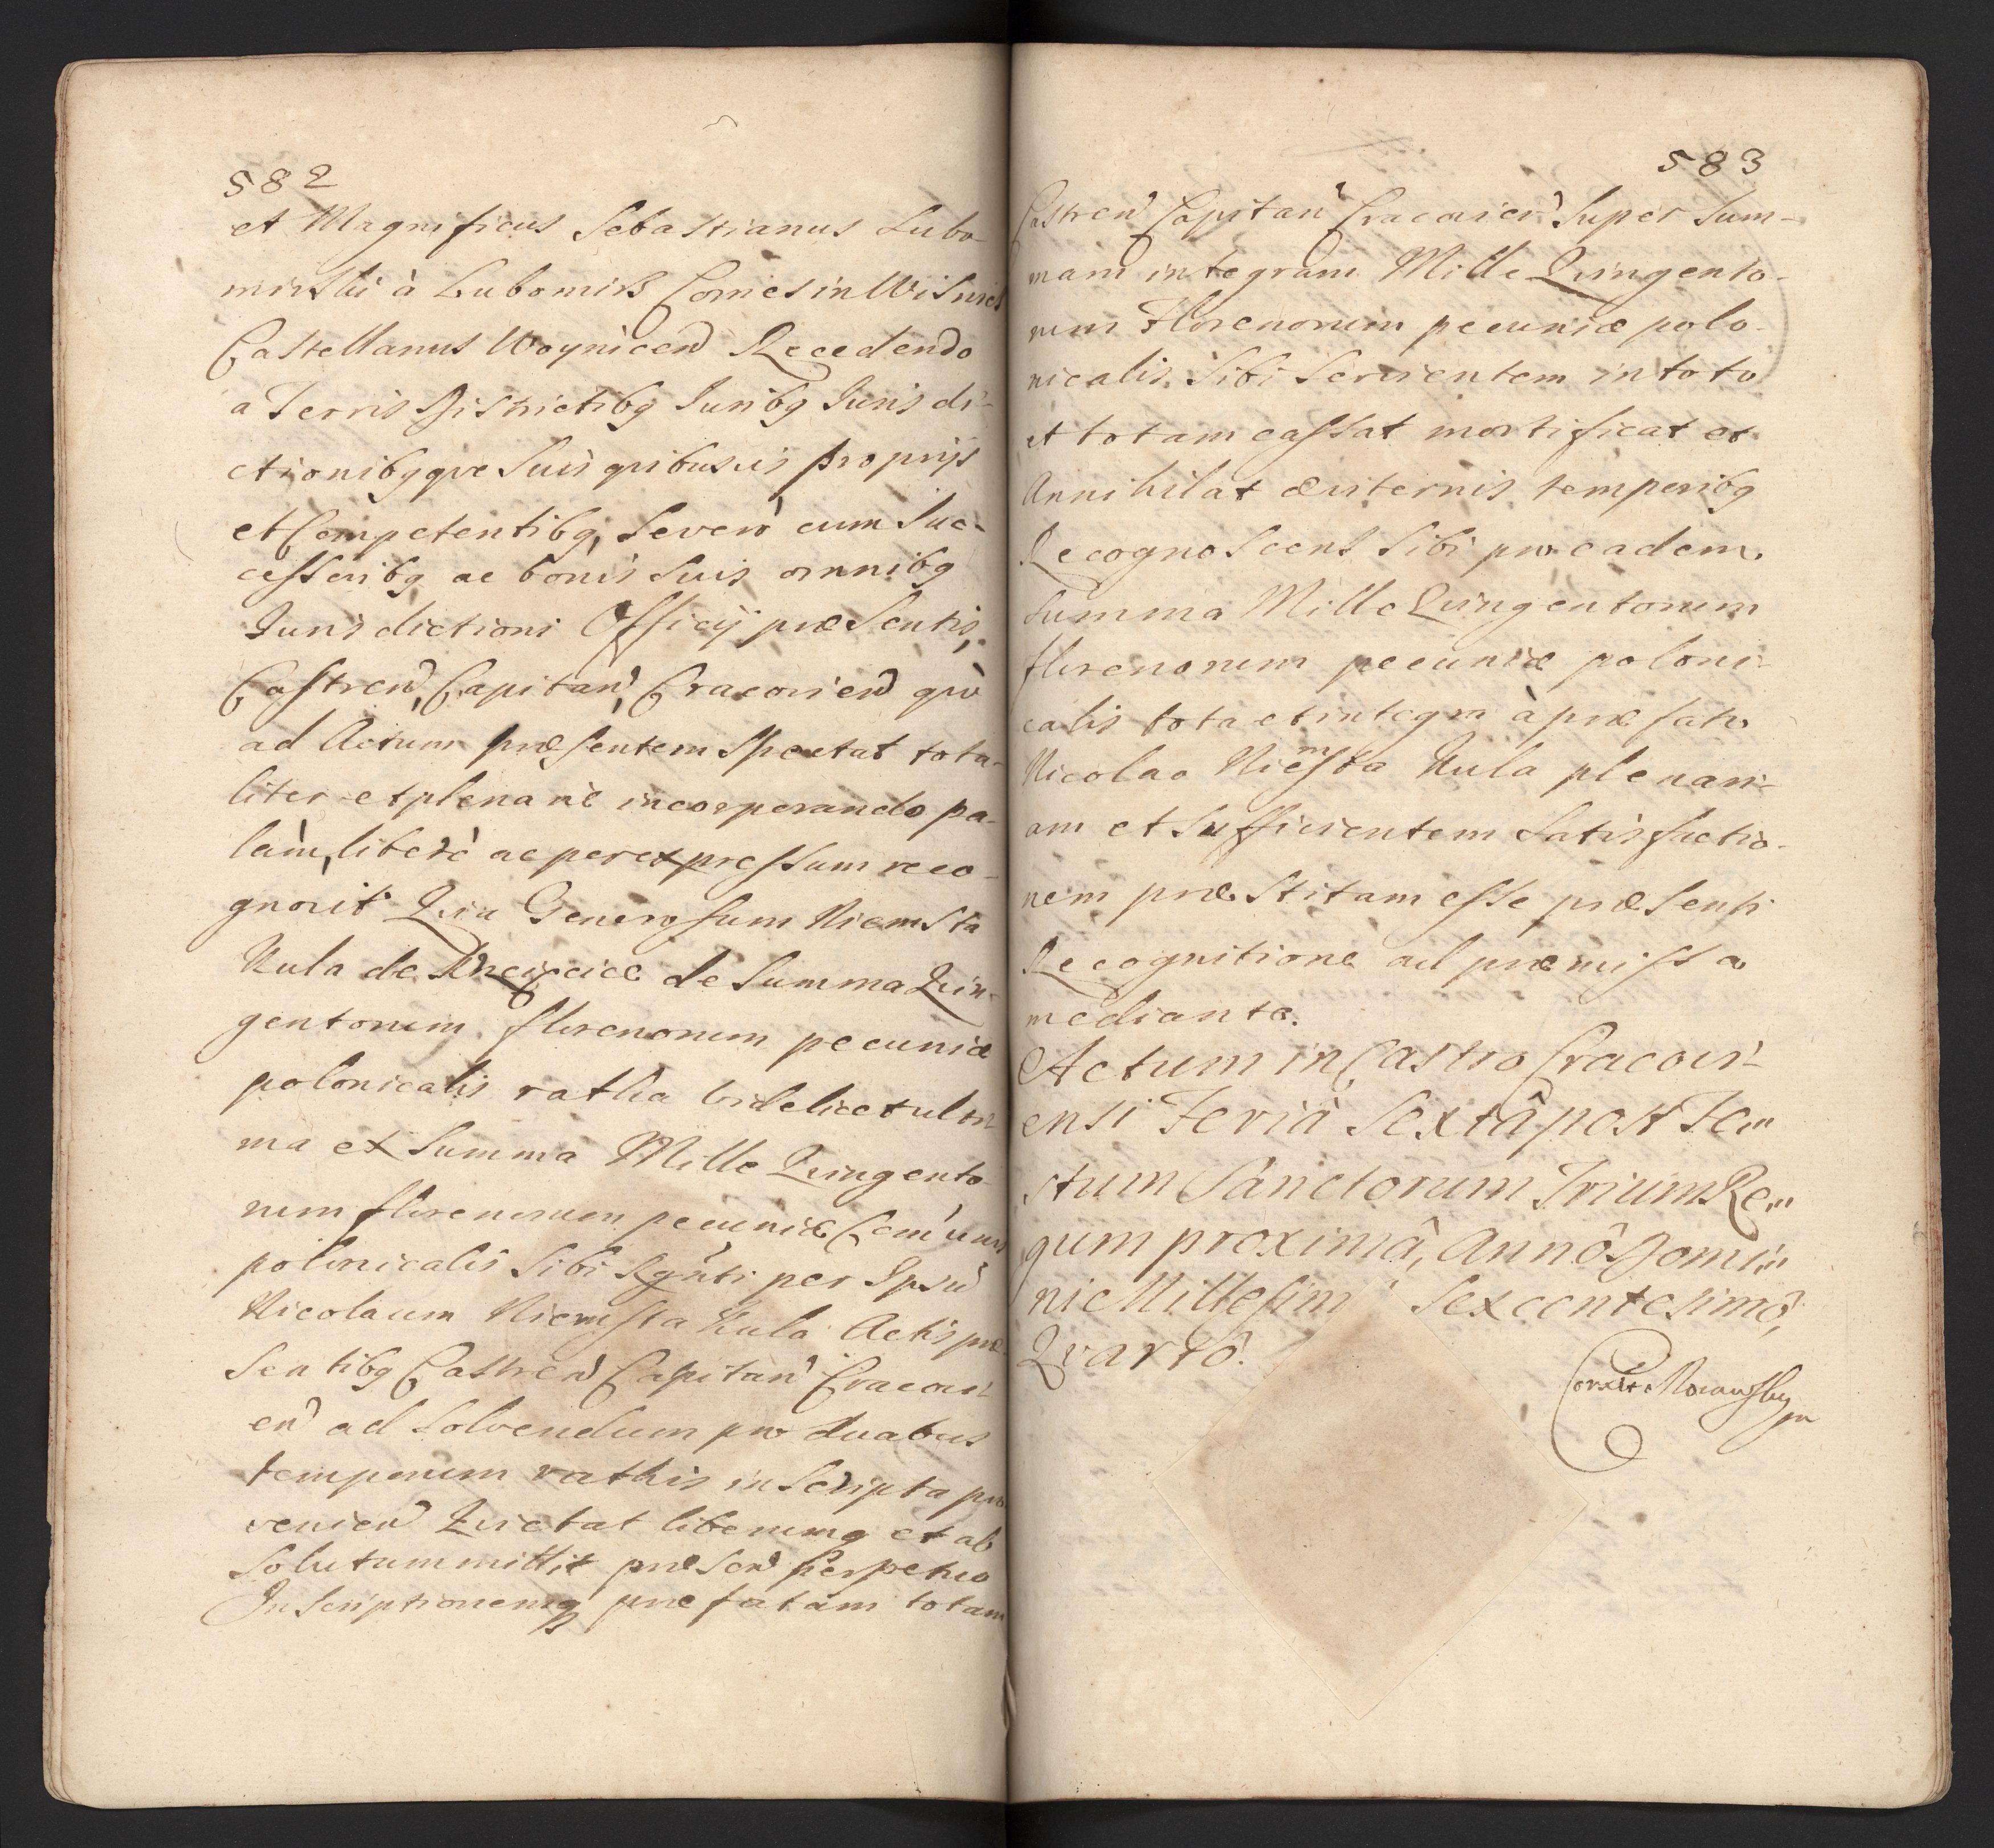 582
et Magnificus Sebastianus Lubo-
mirski à Lubomirz Comes in Wisnicz
Castellanus Woynicen̄ Recedendo
a Terris Districtibq Juribq Juris di-
ctionibqque Suis quibusvis proprijs
et Competentibq, Severo cum Suc-
cessoribq ac bonis Suis omnibq
Jurisdictioni Officij præsentis,
Castren̄, Capitan̄, Cracovien̄ quò
ad Actum præsentem Spectat tota-
liter et plenarie incorporando pa-
làm, liberè ac per expressum reco-
gnovit Quia Generosum Niemsta
Kula de de Summa Quin-
gentorum florenorum pecuniæ
polonicalis ratha videlicet ulti
ma ex Summa Mille Quingento
rum florenorum pecuniæ Com̄unis
polonicalis Sibi Rgn̄ti per Ipsū
Nicolaum Niemsta Kula Actis præ
sentibq Castren̄ Capitan̄ Cracovi
en̄ ad Solvendum pro duabus
temporum rathis inscripta pro
venien̄ Quietat liberumq et ab
solutum mittit præsen̄ perpetuo
Inscriptionemq præfatam totam
583
Castren̄ Capitan̄ Cracovien̄ Super Sum-
mam integram Mille Quingento-
rum Florenorum pecuniæ polo-
nicalis, Sibi Servientem in toto
et totam cassat mortificat et
Annihilat æviternis temporibq
Recognoscens Sibi pro eadem
Summa Mille Quingentorum
florenorum pecuniæ poloni-
calis tota et integra à præfato
Nicolao Niemsta Kula plenari-
am et Sufficientem Satisfactio-
nem præstitam esse præsenti
Recognitione ad præmissa
mediante.
Actum in Castro Cracovi-
ensi Feriâ Sextâ post Fe-
stum Sanctorum Trium Re-
gum proximâ, Annô Domi-
ni Millesim Sexcentesimô,
Quartô.